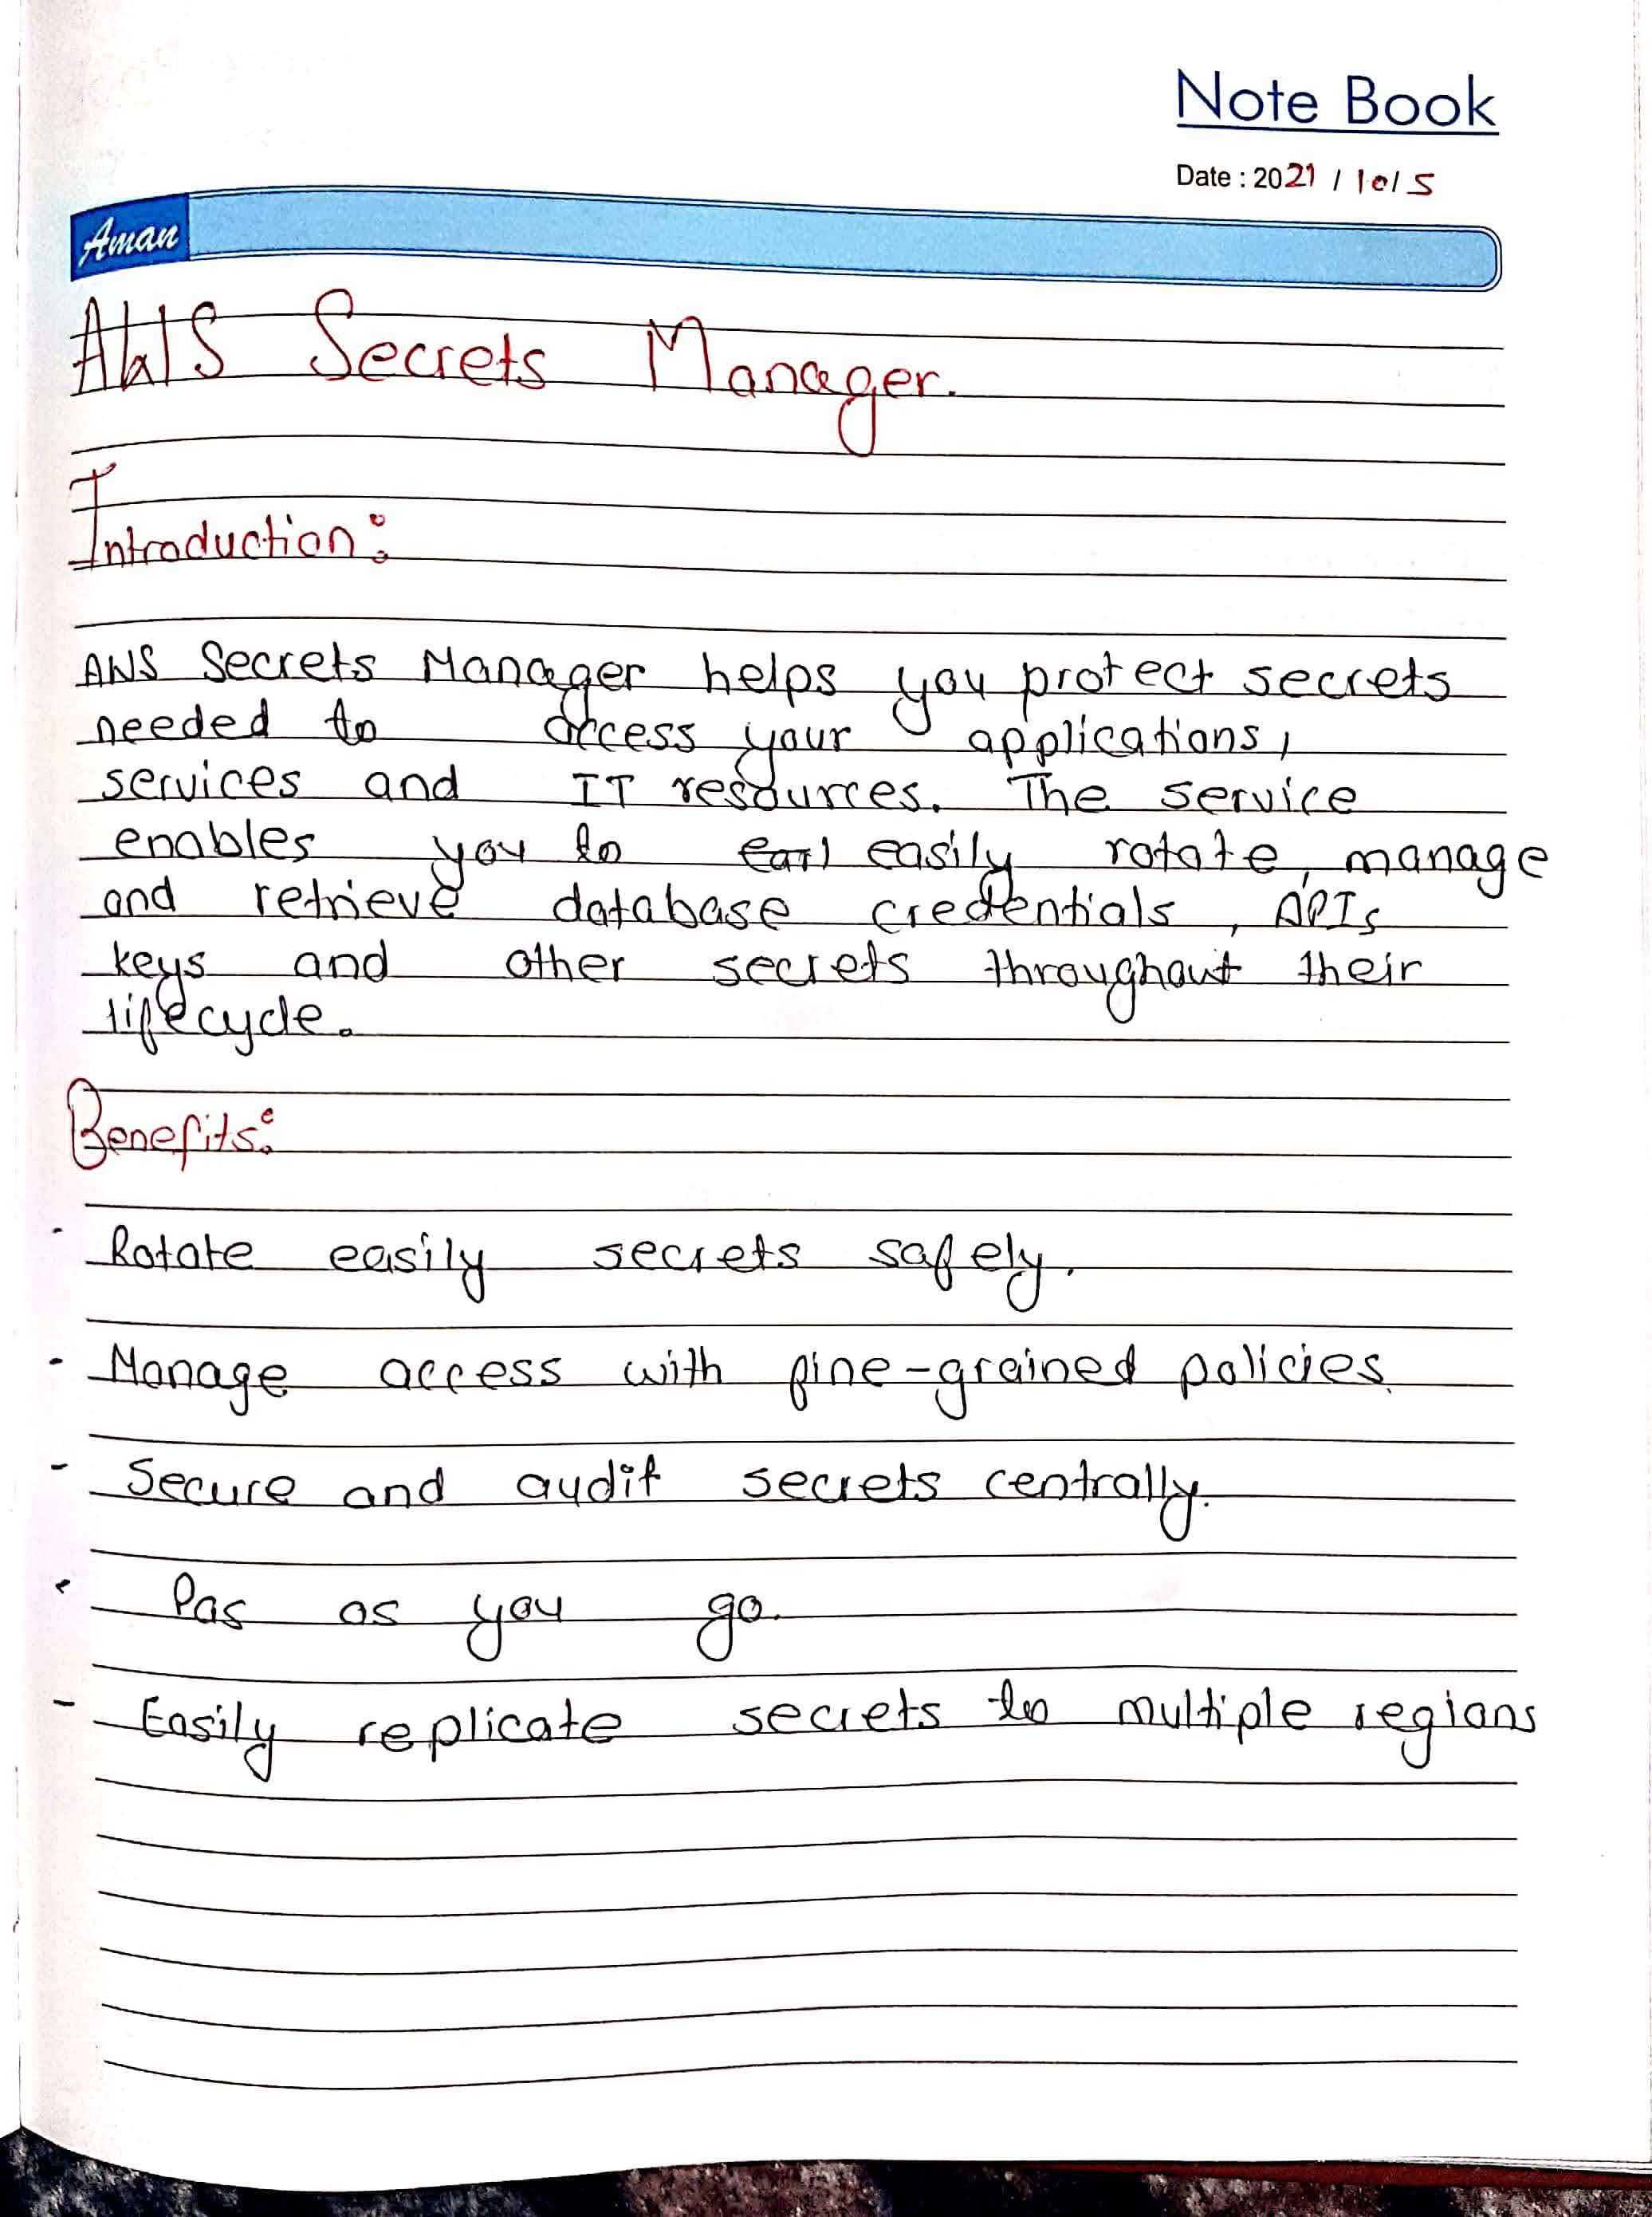 Note Book
Date : 2021 / 10 / 5
Aman
AWS Secrets Manager.
Introduction:
AWS Secrets Manager helps you protect secrets
needed to access your applications,
services and IT resources. The service
enables you to easily rotate, manage
and retrieve database credentials, APIs
keys and other secrets throughout their
lifecycle.
Benefits:
- Rotate easily secrets safely.
- Manage access with fine-grained policies.
- Secure and audit secrets centrally.
- Pas as you go.
- Easily replicate secrets to multiple regions